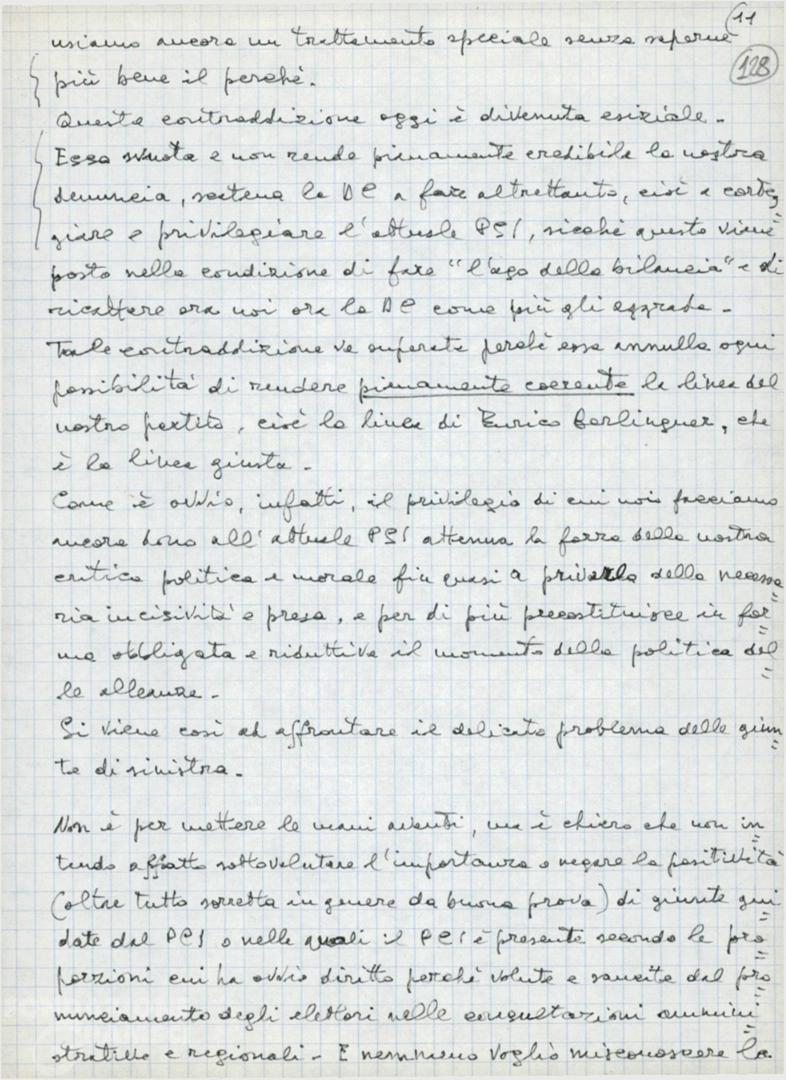 11
128
usiamo ancora un trattamento speciale senza saperne
più bene il perchè.
Questa contraddizione oggi è divenuta esiziale.
Essa svuota e non rende pienamente credibile la nostra
denuncia, sostiene la DC a fare altrettanto, cioè a corteg
giare e privilegiare l'attuale PSI, sicchè questo viene
posto nella condizione di fare "l'ago della bilancia" e di
ricattare ora noi ora la DC come più gli aggrada.
Tale contraddizione va superata perchè essa annulla ogni
possibilità di rendere pienamente coerente la linea del
nostro partito, cioè la linea di Enrico Berlinguer, che
è la linea giusta.
Come è ovvio, infatti, il privilegio di cui noi facciamo
ancora dono all'attuale PSI attenua la forza della nostra
critica politica e morale fin quasi a privarla della necessa=
ria incisività e presa, e per di più precostituisce in for=
ma obbligata e riduttiva il momento della politica del=
le alleanze.
Si viene così ad affrontare il delicato problema delle giun=
te di sinistra.
Non è per mettere le mani avanti, ma è chiaro che non in=
tendo affatto sottovalutare l'importanza o negare la positività
(oltre tutto sorretta in genere da buona prova) di giunte gui=
date dal PCI o nelle quali il PCI è presente secondo le pro=
porzioni cui ha ovvio diritto perchè volute e sancite dal pro=
nunciamento degli elettori nelle consultazioni ammini=
strative e regionali. E nemmeno voglio misconoscere la